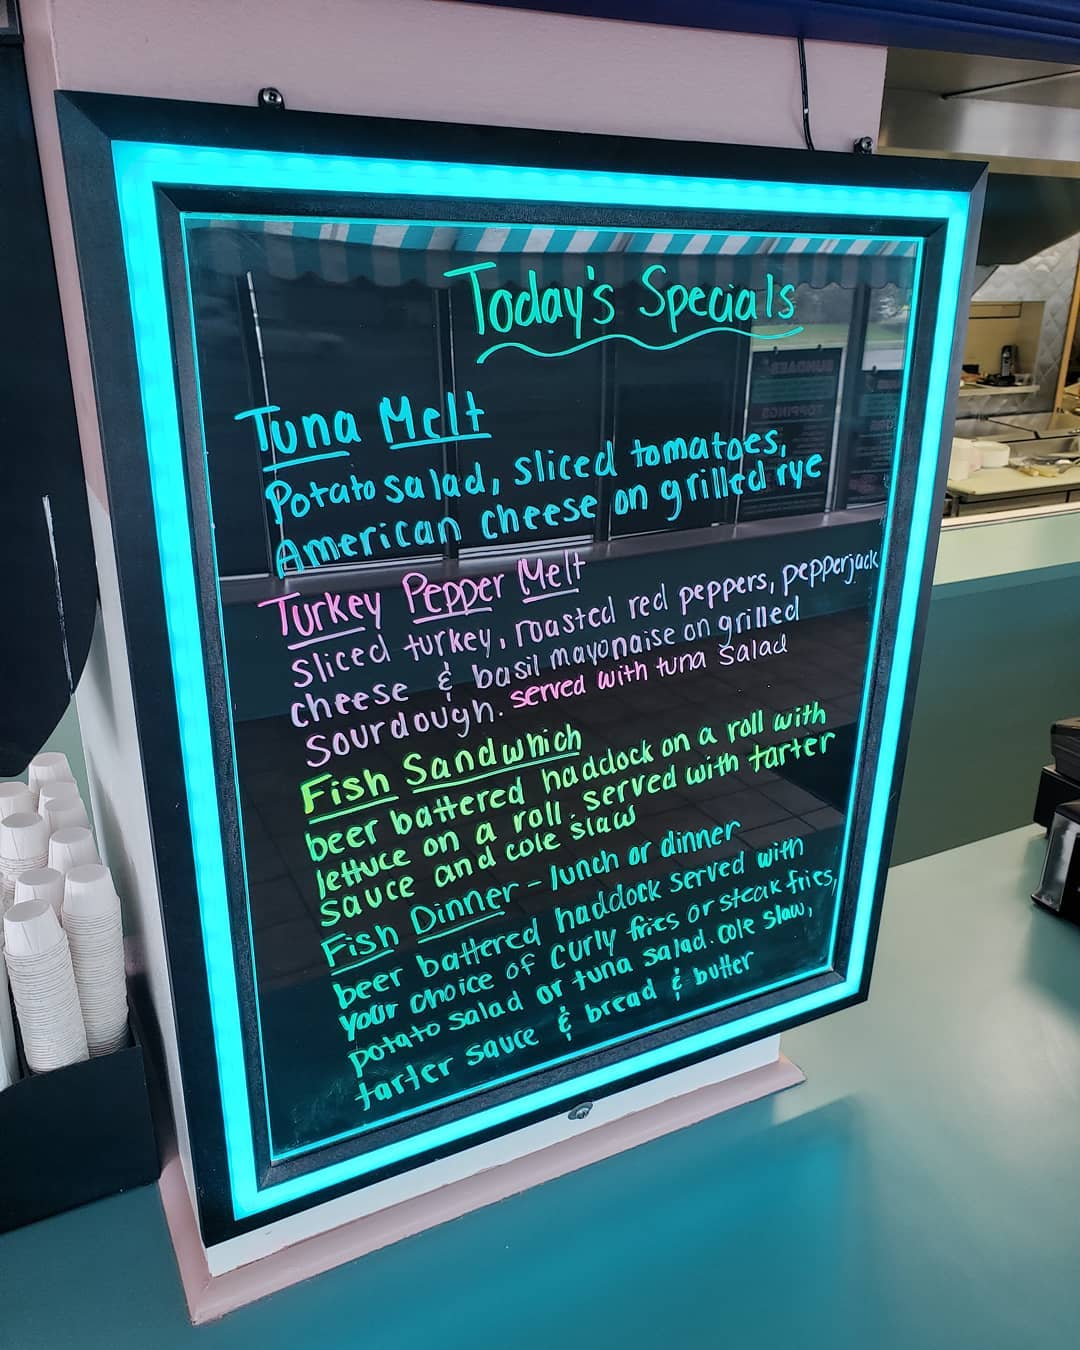 Today's Specials
Tuna Melt
Potato salad, sliced tomatoes,
American cheese on grilled rye
Turkey Pepper Melt
Sliced turkey, roasted red peppers, pepperjack
cheese & basil mayonaise on grilled
sourdough. served with tuna salad
Fish Sandwhich
beer battered haddock on a roll with
lettuce on a roll. served with tarter
sauce and cole slaw
Fish Dinner - lunch or dinner
beer battered haddock served with
your choice of curly fries or steak fries,
potato salad or tuna salad. cole slaw,
tarter sauce & bread & butter
SUNDAES
TOPPINGS